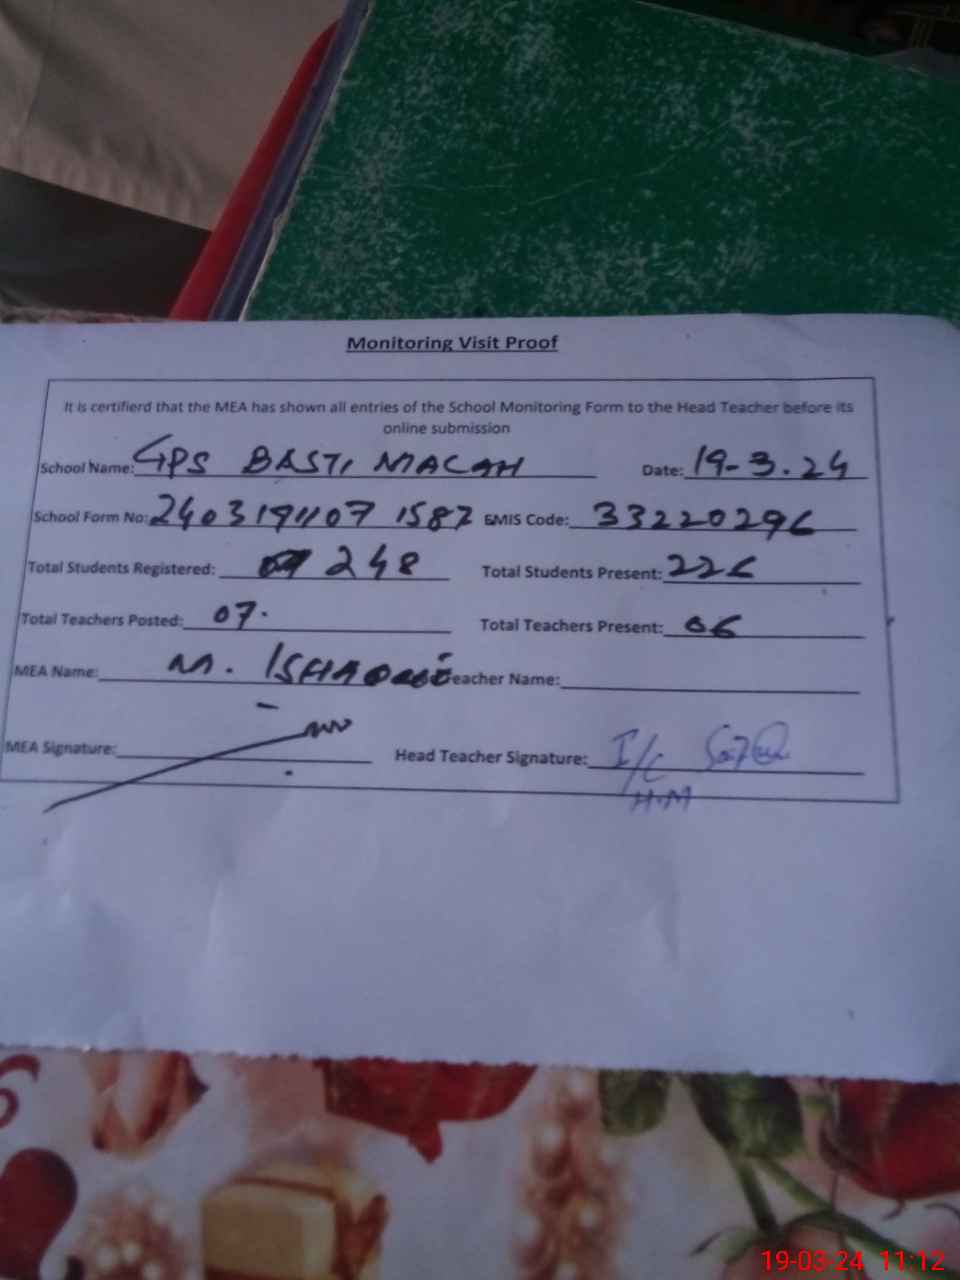 Monitoring Visit Proof
It is certifierd that the MEA has shown all entries of the School Monitoring Form to the Head Teacher before its
online submission
School Name: GPS BASTI MACHH Date: 19-3.24
School Form No: 24031911071587 EMIS Code: 33220296
Total Students Registered: 248 Total Students Present: 226
Total Teachers Posted: 07. Total Teachers Present: 06
MEA Name: M. ISHAQ eacher Name:
MEA Signature: Head Teacher Signature: I/C
H.M
19-03-24 11:12